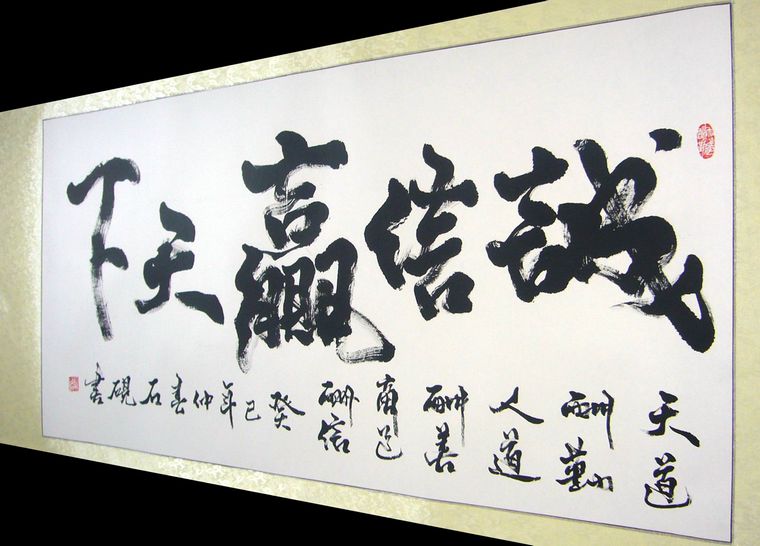 誠信贏天下
天道
酬勤
人道
酬善
商道
酬信
癸巳年仲春石硯書